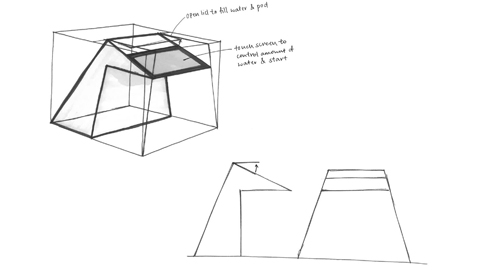 open lid to fill water & pod
touch screen to
control amount of
water & start